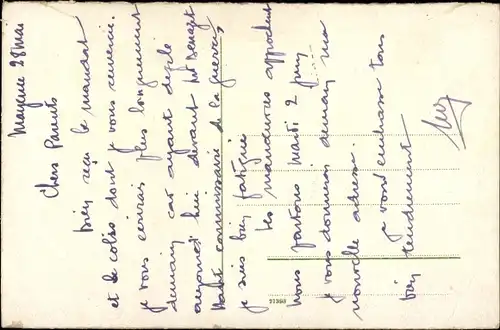 Mayence 28 mai
Chers Parents
bien reçu le mandat
et le colis dont je vous remercie.
je vous écrirai plus longuement
demain car ayant défilé
aujourd'hui devant
Haut commissaire de la guerre,
je suis bien fatigué
Les manœuvres approchent
nous partons mardi 2 juin
je vous donnerai demain ma
nouvelle adresse.
je vous embrasse tous
bien tendrement